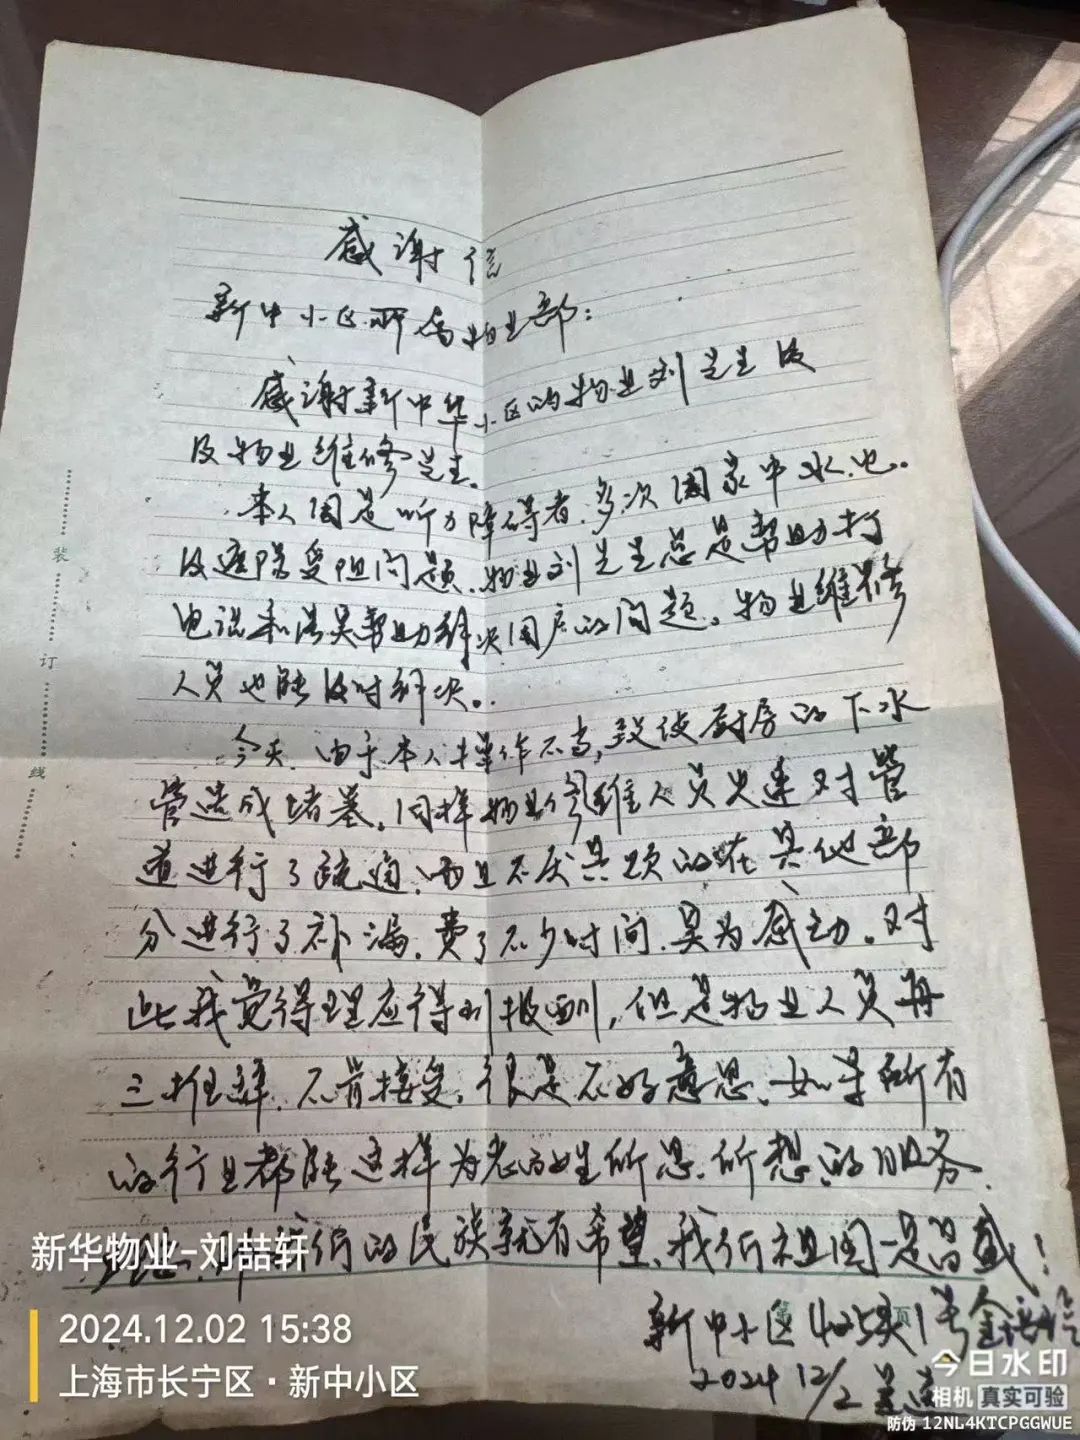 感谢信
新中小区所属物业部：
感谢新中华小区的物业刘先生及
及物业维修先生。
本人因是听力障碍者，多次因家中水、电。
及遮阳受阻问题，物业刘先生总是帮助打
电话和沟通帮助解决困难的问题。物业维修
人员也能及时解决。
今天，由于本人操作不当，致使厨房的下水
管造成堵塞。同样物业修维人员火速对管
道进行了疏通，而且不厌其烦的在其他部
分进行了补漏，费了不少时间，真为感动。对
此我觉得理应得到报酬，但是物业人员再
三推辞，不肯接受，很是不好意思。如果所有
的行业都能这样为老百姓所思、所想的服务，
我们的民族就有希望，我们祖国一定昌盛！
新中小区425弄1号
2024 12/2
装
订
线
第
页
新华物业-刘喆轩
2024.12.02 15:38
上海市长宁区·新中小区
今日水印
相机 真实可验
防伪 12NL4KTCPGGWUE